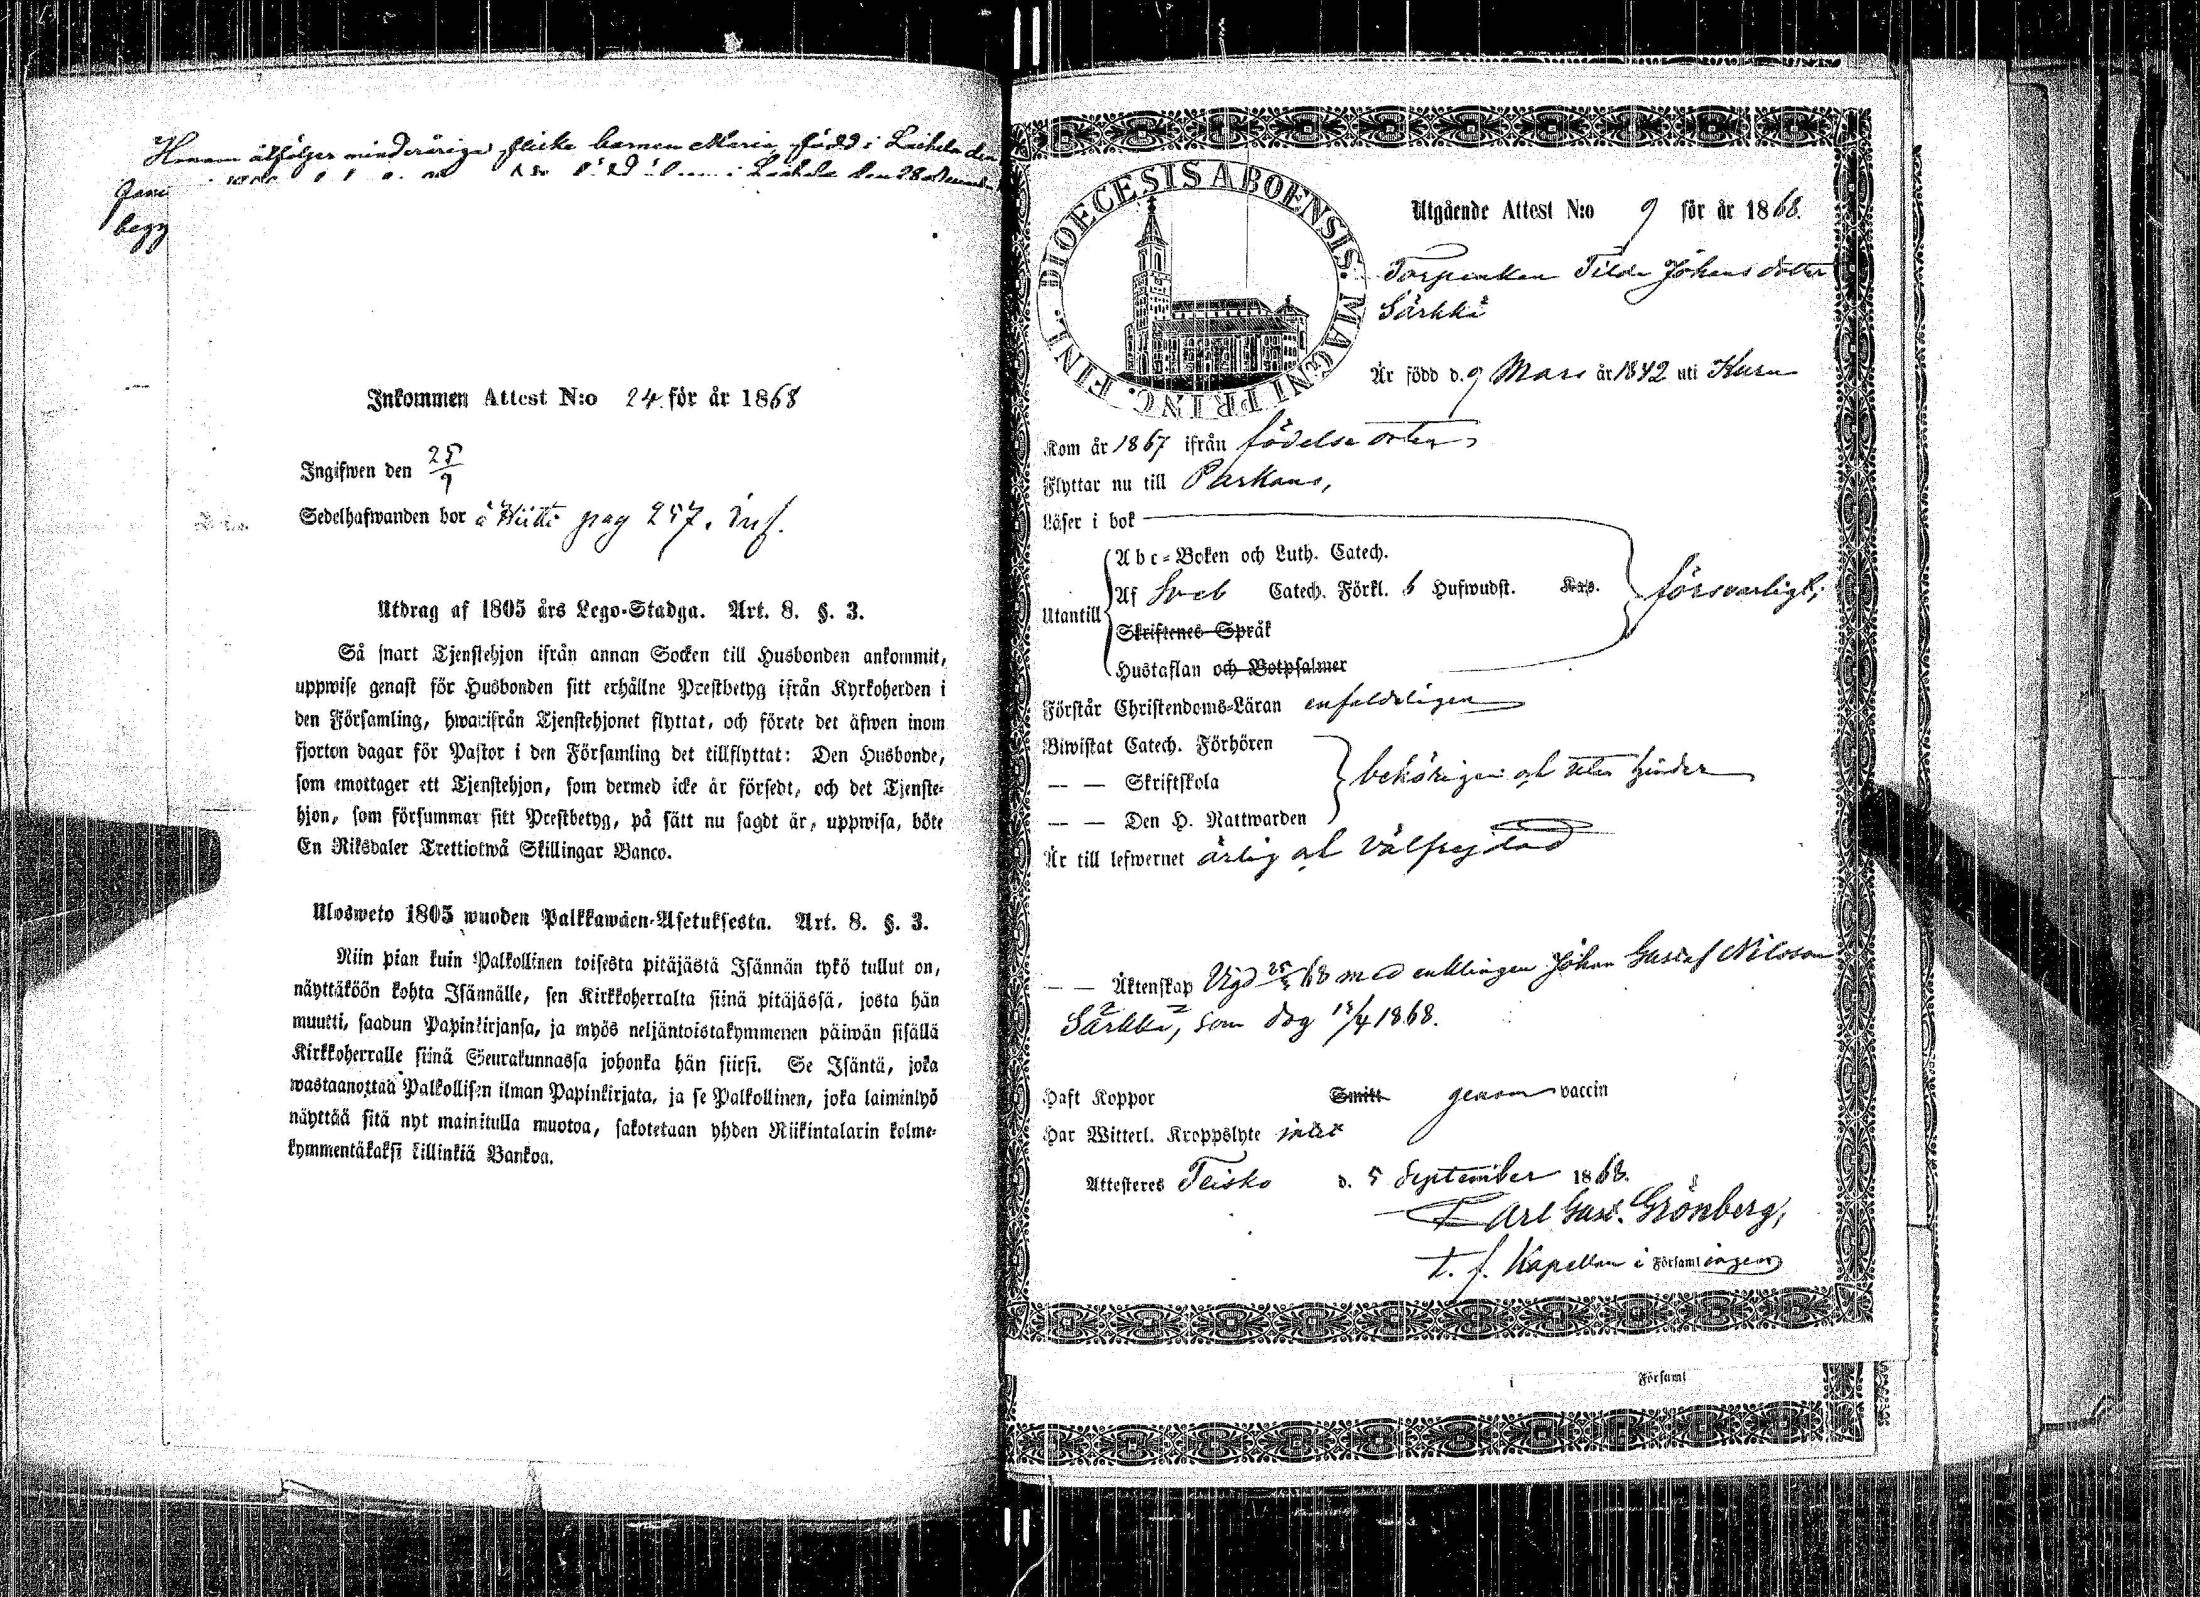 Honom åtföljer minderåriga flicke barnen Maria, född i Laihela den
begg
Inkommen Attest N:o 24 för år 1868
Ingifwen den 25/9
Sedelhafwanden bor å pag 257. inf.
Utdrag af 1805 års Lego-Stadga. Art. 8. §. 3.
Så snart Tjenstehjon ifrån annan Socken till Husbonden ankommit,
uppwise genast för Husbonden sitt erhållne Prestbetyg ifrån Kyrkoherden i
den Församling, hwarifrån Tjenstehjonet flyttat, och förete det äfwen inom
fjorton dagar för Pastor i den Församling det tillflyttat: Den Husbonde,
som emottager ett Tjenstehjon, som dermed icke är försedt, och det Tjenste-
hjon, som försummar sitt Prestbetyg, på sätt nu sagdt är, uppwisa, böte
En Riksdaler Trettiotwå Skillingar Banco.
Ulosweto 1805 wuoden Palkkawäen-Asetuksesta. Art. 8. §. 3.
Niin pian kuin Palkollinen toisesta pitäjästä Isännän tykö tullut on,
näyttäköön kohta Isännälle, sen Kirkkoherralta siinä pitäjässä, josta hän
muutti, saadun Papinkirjansa, ja myös neljäntoistakymmenen päiwän sisällä
Kirkkoherralle siinä Seurakunnassa johonka hän siirsi. Se Isäntä, joka
wastaanottaa Palkollisen ilman Papinkirjata, ja se Palkollinen, joka laiminlyö
näyttää sitä nyt mainitulla muotoa, sakotetaan yhden Riikintalarin kolme-
kymmentäkaksi killinkiä Bankoa.
DIOECESIS ABOENSIS. MAGNI PRINC. FINL.
Utgående Attest N:o 9 för år 1868.
Torpenkan Tilda Johansdotter
Särkkä
Är född d. 9 Mars år 1842 uti Kuru
Kom år 1867 ifrån födelse orten
Flyttar nu till Parkano,
Läser i bok
Abc-Boken och Luth. Catech.
Utantill Af Sveb Catech. Förkl. 6 Hufwudst. Kap. försvarligt;
Skriftenes Språk
Hustaflan och Botpsalmer
Förstår Christendoms-Läran enfaldeligen
Biwistat Catech. Förhören
— — Skriftskola behörigen och utan hinder
— — Den H. Nattwarden
Är till lefwernet ärlig och välfrejdad
— — Äktenskap Vigd 25/ 68 med enklingen Johan Gustaf Nilsson
Särkkä, som dog /4 1868.
Haft Koppor Smitt genom vaccin
Har Witterl. Kroppslyte intet
Attesteres Teisko d. 5 September 1868.
Carl Gust. Grönberg,
t. f. Kapellan i Församlingen
i Församl